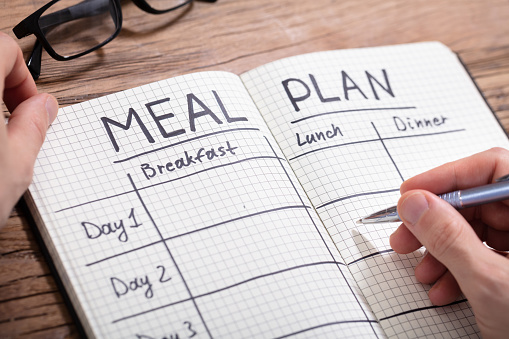 MEAL PLAN
Breakfast Lunch Dinner
Day 1
Day 2
Day 3